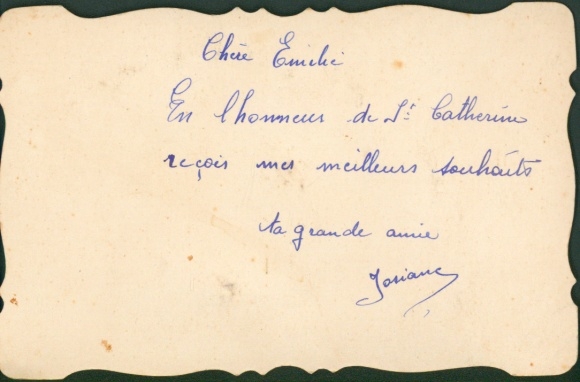 Chère Emilie
En l'honneur de St Catherine
reçois mes meilleurs souhaits
ta grande amie
Josiane